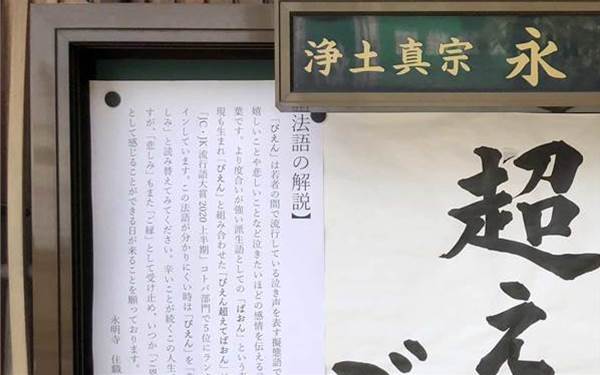 浄土真宗 永
超え
法語の解説】
「ぴえん」は若者の間で流行している泣き声を表す擬態語で
嬉しいことや悲しいことなど泣きたいほどの感情を伝える
葉です。より度合いが強い派生語としての「ぱおん」という
現も生まれ「ぴえん」と組み合わせた「ぴえん超えてぱおん」
『JC・JK流行語大賞2020上半期』コトバ部門で5位にラン
インしています。この法語が分かりにくい時は「ぴえん」を「
しみ」と読み替えてみてください。辛いことが続くこの人生
すが、「悲しみ」もまた「ご縁」として受け止め、いつか「ご恩
として感じることができる日が来ることを願っております。
永明寺 住職